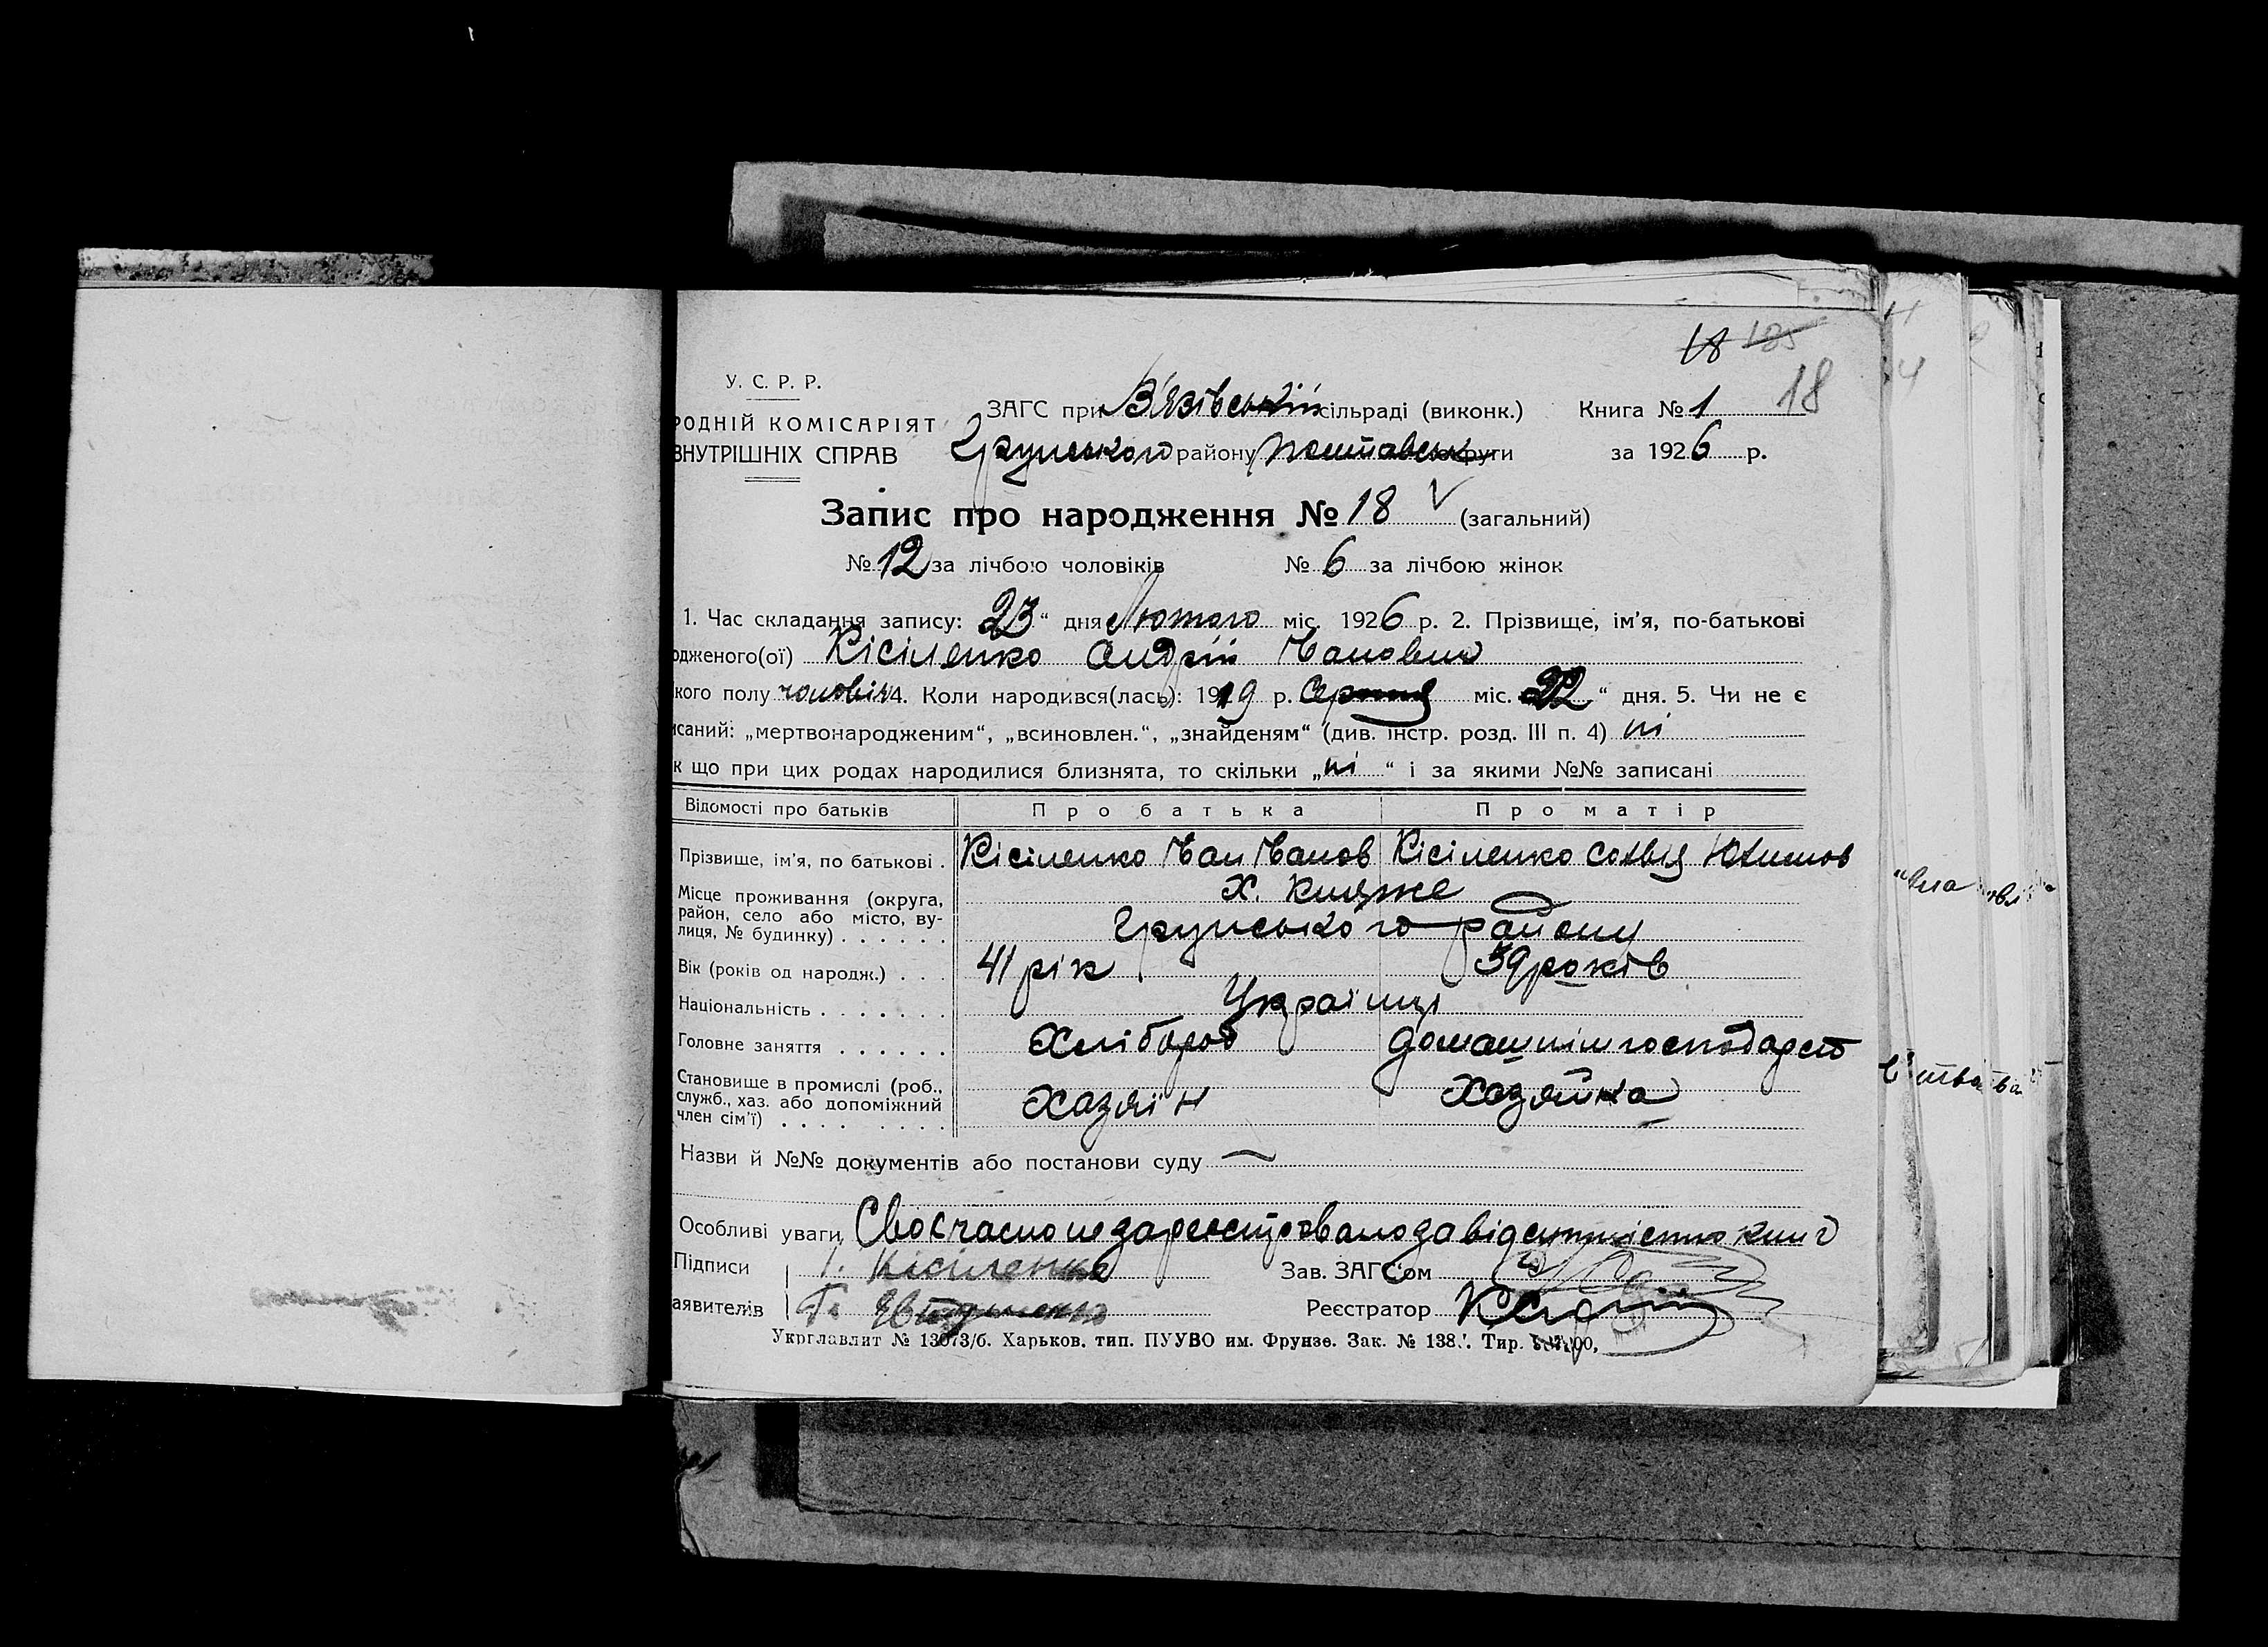 18 185
У. С. Р. Р.
ЗАГС при В'язівській сільраді (виконк.) Книга № 1 18
РОДНІЙ КОМІСАРІЯТ
ВНУТРІШНІХ СПРАВ Грунського району Полтавськ округи за 1926 р.
Запис про народження № 18 V (загальний)
№ 12 за лічбою чоловіків № 6 за лічбою жінок
1. Час складання запису: 23 “ дня Лютого міс. 1926 р. 2. Прізвище, ім'я, по-батькові
одженого(ої) Кісіленко Андрій Іванович
кого полу чоловіч 4. Коли народився(лась): 1919 р. Серпня міс. 22 “ дня. 5. Чи не є
исаний: „мертвонародженим“, „всиновлен.“, „знайденям“ (див. інстр. розд. III п. 4) ні
к що при цих родах народилися близнята, то скільки „ні“ і за якими №№ записані
Відомості про батьків Про батька Про матір
Прізвище, ім'я, по батькові . Кісіленко Іван Іванов Кісіленко Софья Юхимов
Місце проживання (округа, х. Княже
район, село або місто, ву-
лиця, № будинку) . . . . . . Грунського району
Вік (років од народж.) . . . 41 рік 39 років
Національність . . . . . . . Українці
Головне заняття . . . . . . Хлібороб домашнім господарст
Становище в промислі (роб.,
служб., хаз. або допоміжний Хазяїн Хозяйка
член сім'ї) . . . . . . . .
Назви й №№ документів або постанови суду —
Особливі уваги Своєчасно не зареєстровано за відсутністю книг
Підписи І. Кісіленко Зав. ЗАГС'ом
аявителів Реєстратор
Укрглавлит № 13073/б. Харьков, тип. ПУУВО им. Фрунзе. Зак. № 138. Тир.